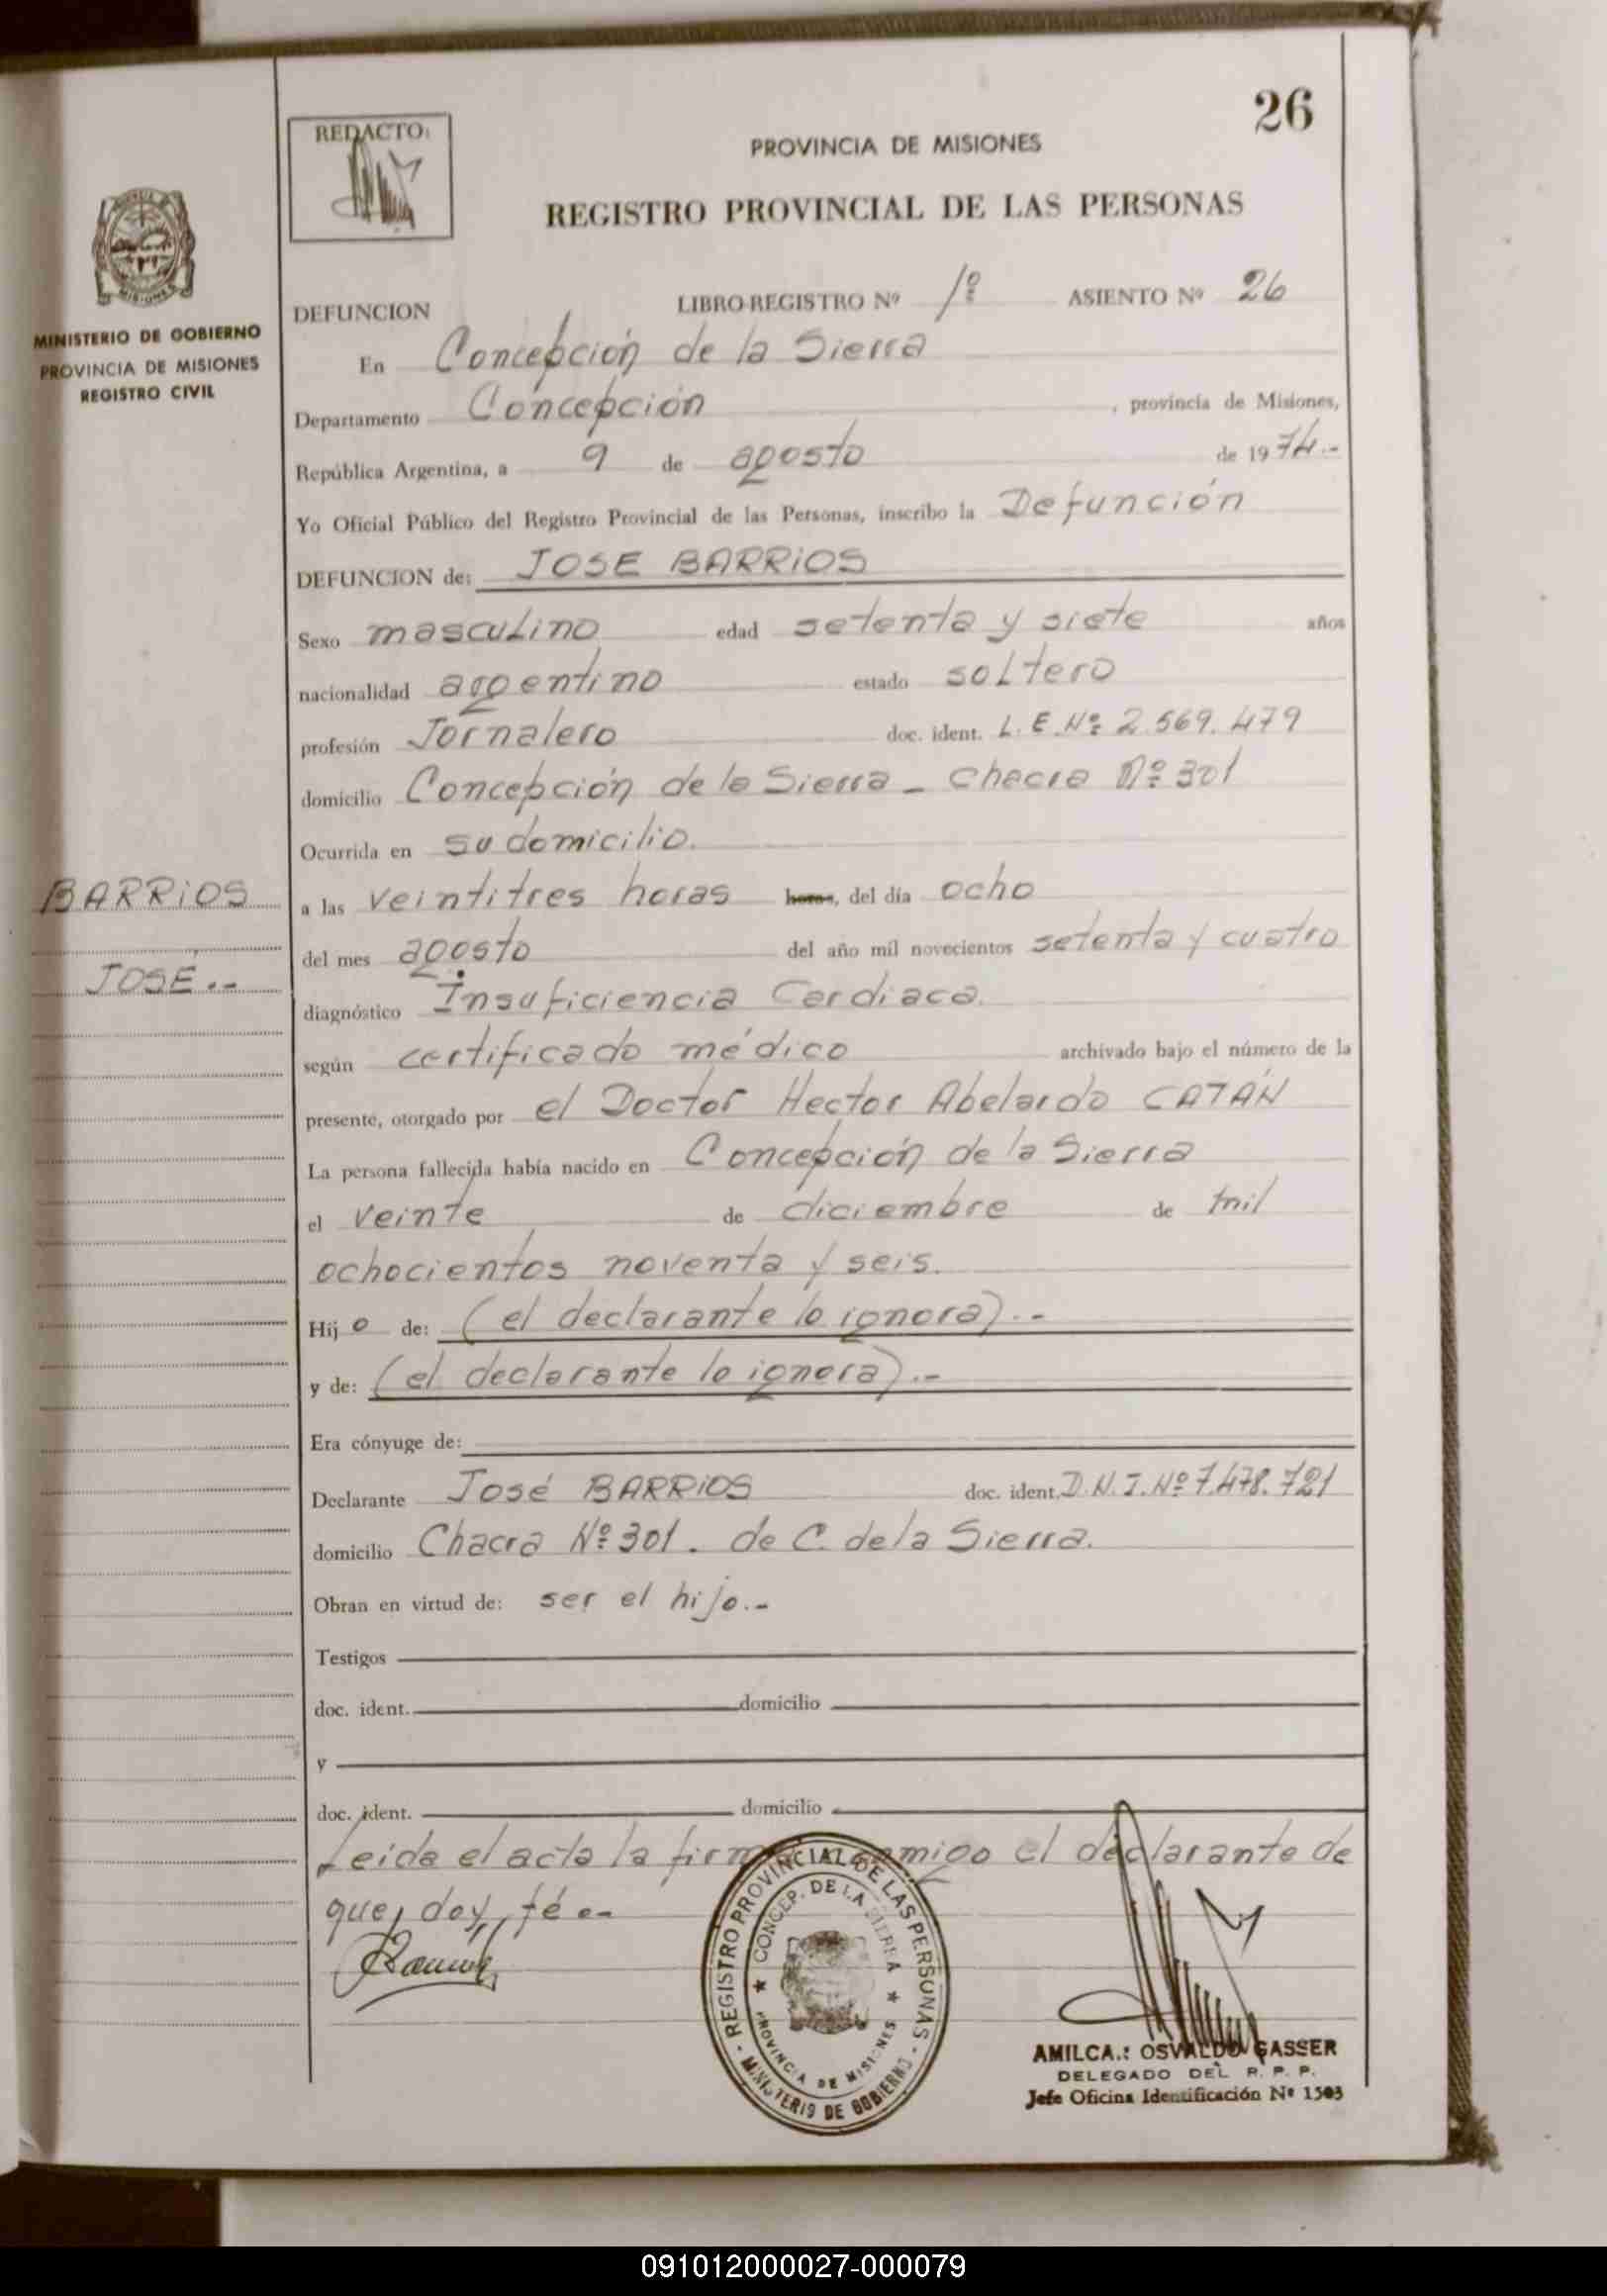 26
REDACTO:
PROVINCIA DE MISIONES
REGISTRO PROVINCIAL DE LAS PERSONAS
MINISTERIO DE GOBIERNO
PROVINCIA DE MISIONES
REGISTRO CIVIL
DEFUNCION LIBRO-REGISTRO Nº 1º ASIENTO Nº 26
En Concepción de la Sierra
Departamento Concepción, provincia de Misiones,
República Argentina, a 9 de agosto de 1974.-
Yo Oficial Público del Registro Provincial de las Personas, inscribo la Defunción
DEFUNCION de: JOSE BARRIOS
Sexo masculino edad setenta y siete años
nacionalidad argentino estado soltero
profesión Jornalero doc. ident. L.E.Nº 2.569.479
domicilio Concepción de la Sierra - Chacra Nº 301
Ocurrida en su domicilio.
BARRIOS
a las veintitres horas horas, del día ocho
del mes agosto del año mil novecientos setenta y cuatro
JOSE.--
diagnóstico Insuficiencia Cardiaca.
según certificado médico archivado bajo el número de la
presente, otorgado por el Doctor Hector Abelardo CATÁN
La persona fallecida había nacido en Concepción de la Sierra
el veinte de diciembre de mil
ochocientos noventa y seis.
Hijo de: (el declarante lo ignora).--
y de: (el declarante lo ignora).--
Era cónyuge de:
Declarante José BARRIOS doc. ident. D.N.I.Nº 7.478.721
domicilio Chacra Nº 301. de C. de la Sierra.
Obran en virtud de: ser el hijo.--
Testigos
doc. ident. domicilio
y
doc. ident. domicilio
Leida el acta la firma conmigo el declarante de
que, doy, fé.--
REGISTRO PROVINCIAL DE LAS PERSONAS
CONCEP. DE LA SIERRA
PROVINCIA DE MISIONES
MINISTERIO DE GOBIERNO
AMILCA.: OSVALDO GASSER
DELEGADO DEL R. P. P.
Jefe Oficina Identificación Nº 1503
091012000027-000079